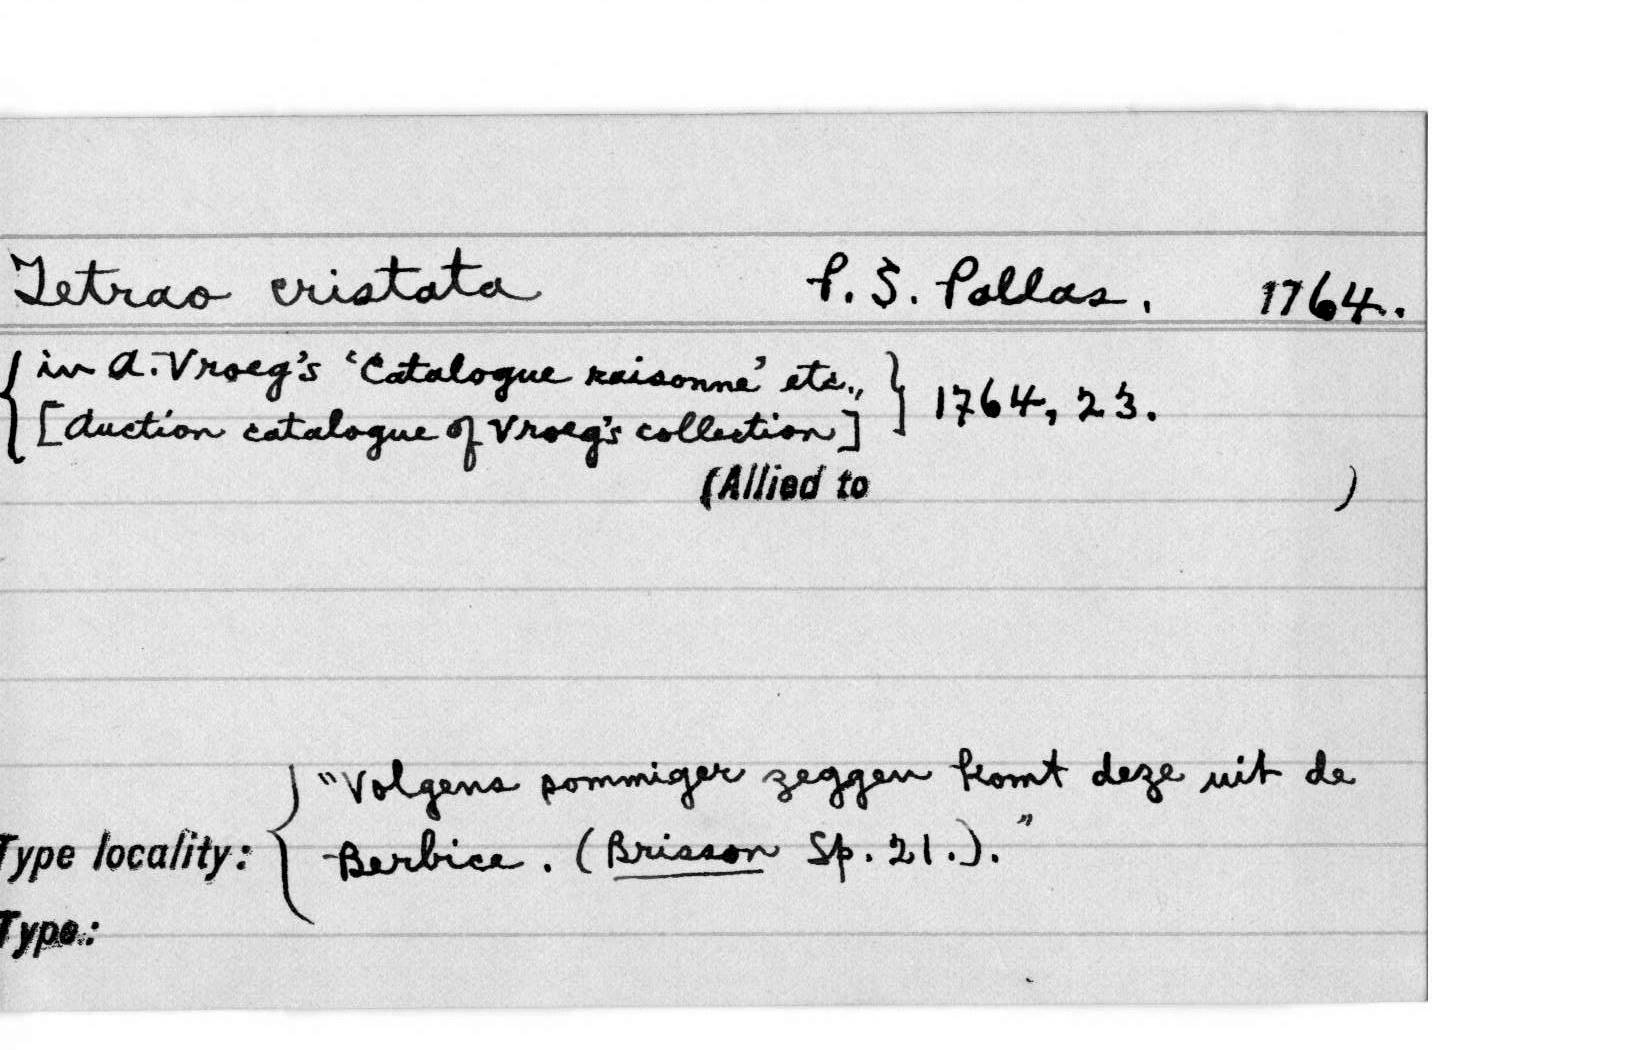 Tetrao cristata P. S. Pallas. 1764.
{ in A. Vroeg's 'Catalogue raisonne' etc., } 1764, 23.
[Auction catalogue of Vroeg's collection]
(Allied to )
"Volgens sommiger zeggen komt deze uit de
Type locality: { Berbice. (Brisson Sp. 21.)."
Type: